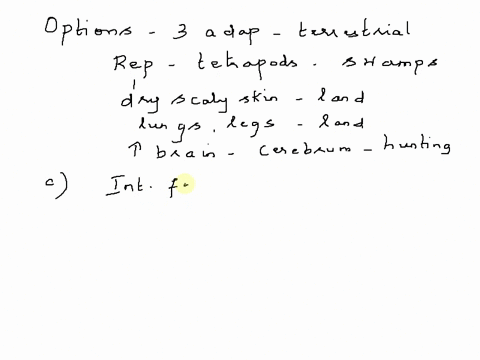 Options - 3 adap - terrestrial
Rep - tetrapods. swamps
dry scaly skin - land
lungs, legs - land
↑ brain - cerebrum - hunting
c) Int. f.